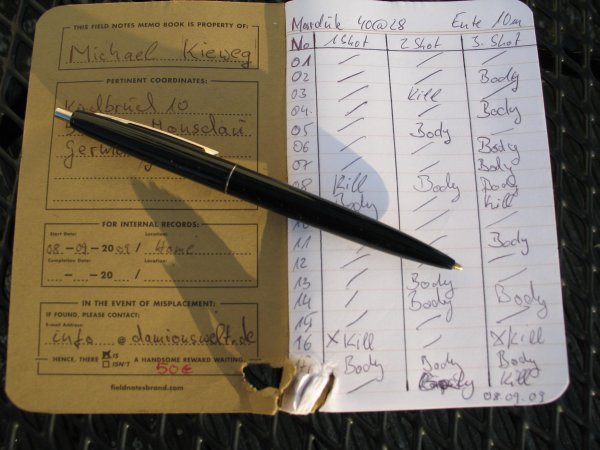 THIS FIELD NOTES MEMO BOOK IS PROPERTY OF:
Michael Kieweg
PERTINENT COORDINATES:
10
German
FOR INTERNAL RECORDS:
Start Date: Location:
08-09-2009 / Home
Completion Date: Location:
- - 20 /
IN THE EVENT OF MISPLACEMENT:
IF FOUND, PLEASE CONTACT:
E-mail Address:
info @damionswelt.de
HENCE, THERE X IS
ISN'T A HANDSOME REWARD WAITING.
50€
fieldnotesbrand.com
Marduk 40@28 Ente 10m
No 1 Shot 2 Shot 3. Shot
01 / / /
02 / / Body
03 / Kill /
04. / / Body
05 / Body /
06 / / Body
07 / / Body
08 Kill Body Body
Body / Kill
10 / /
11 / Body
12 / /
13 / Body /
14 / Body Body
15 / / /
16 X Kill / X Kill
Body Body Body
/ Kill
08.09.09